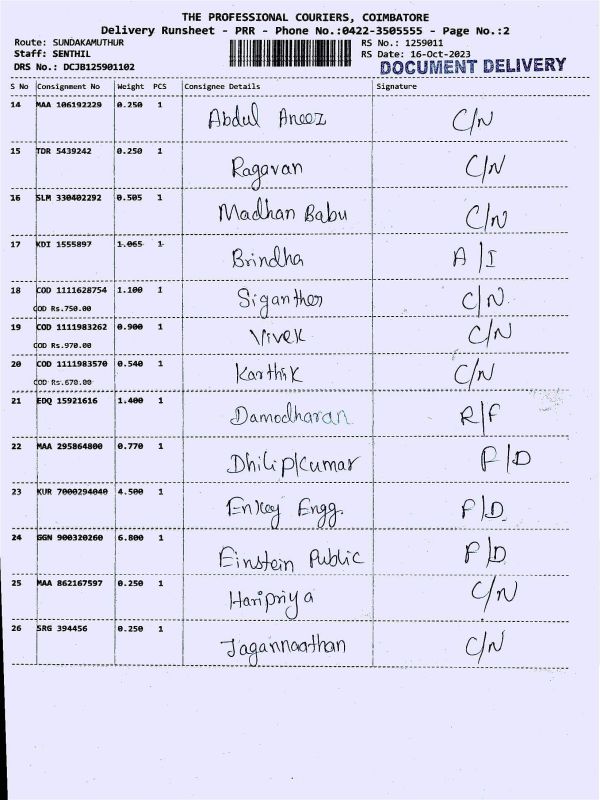 THE PROFESSIONAL COURIERS, COIMBATORE
Delivery Runsheet - PRR - Phone No.:0422-3505555 - Page No.:2
Route: SUNDAKAMUTHUR RS No.: 1259011
Staff: SENTHIL RS Date: 16-Oct-2023
DRS No.: DCJB125901102 DOCUMENT DELIVERY
S No Consignment No Weight PCS Consignee Details Signature
14 MAA 106192229 0.250 1 Abdul Aneez C/N
15 TDR 5439242 0.250 1 Ragavan C/N
16 SLM 330402292 0.505 1 Madhan Babu C/N
17 KDI 1555897 1.065 1 Brindha A/I
18 COD 1111628754 1.100 1 Siganther C/N
COD Rs.750.00
19 COD 1111983262 0.900 1 Vivek C/N
COD Rs.970.00
20 COD 1111983570 0.540 1 Karthik C/N
COD Rs.670.00
21 EDQ 15921616 1.400 1 Damodharan R/F
22 MAA 295864800 0.770 1 Dhilipkumar P/D
23 KUR 7000294040 4.500 1 Enkey Engg. P/D
24 GGN 900320260 6.800 1 Einstein Public P/D
25 MAA 862167597 0.250 1 Haripriya C/N
26 SRG 394456 0.250 1 Jagannaathan C/N